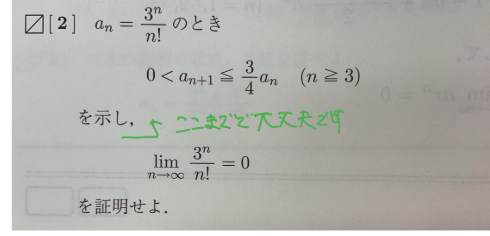 [2] a_n = 3^n/n! のとき
0 < a_{n+1} ≦ 3/4 a_n (n ≧ 3)
を示し,
ここまでで大丈夫です
lim_{n→∞} 3^n/n! = 0
を証明せよ.